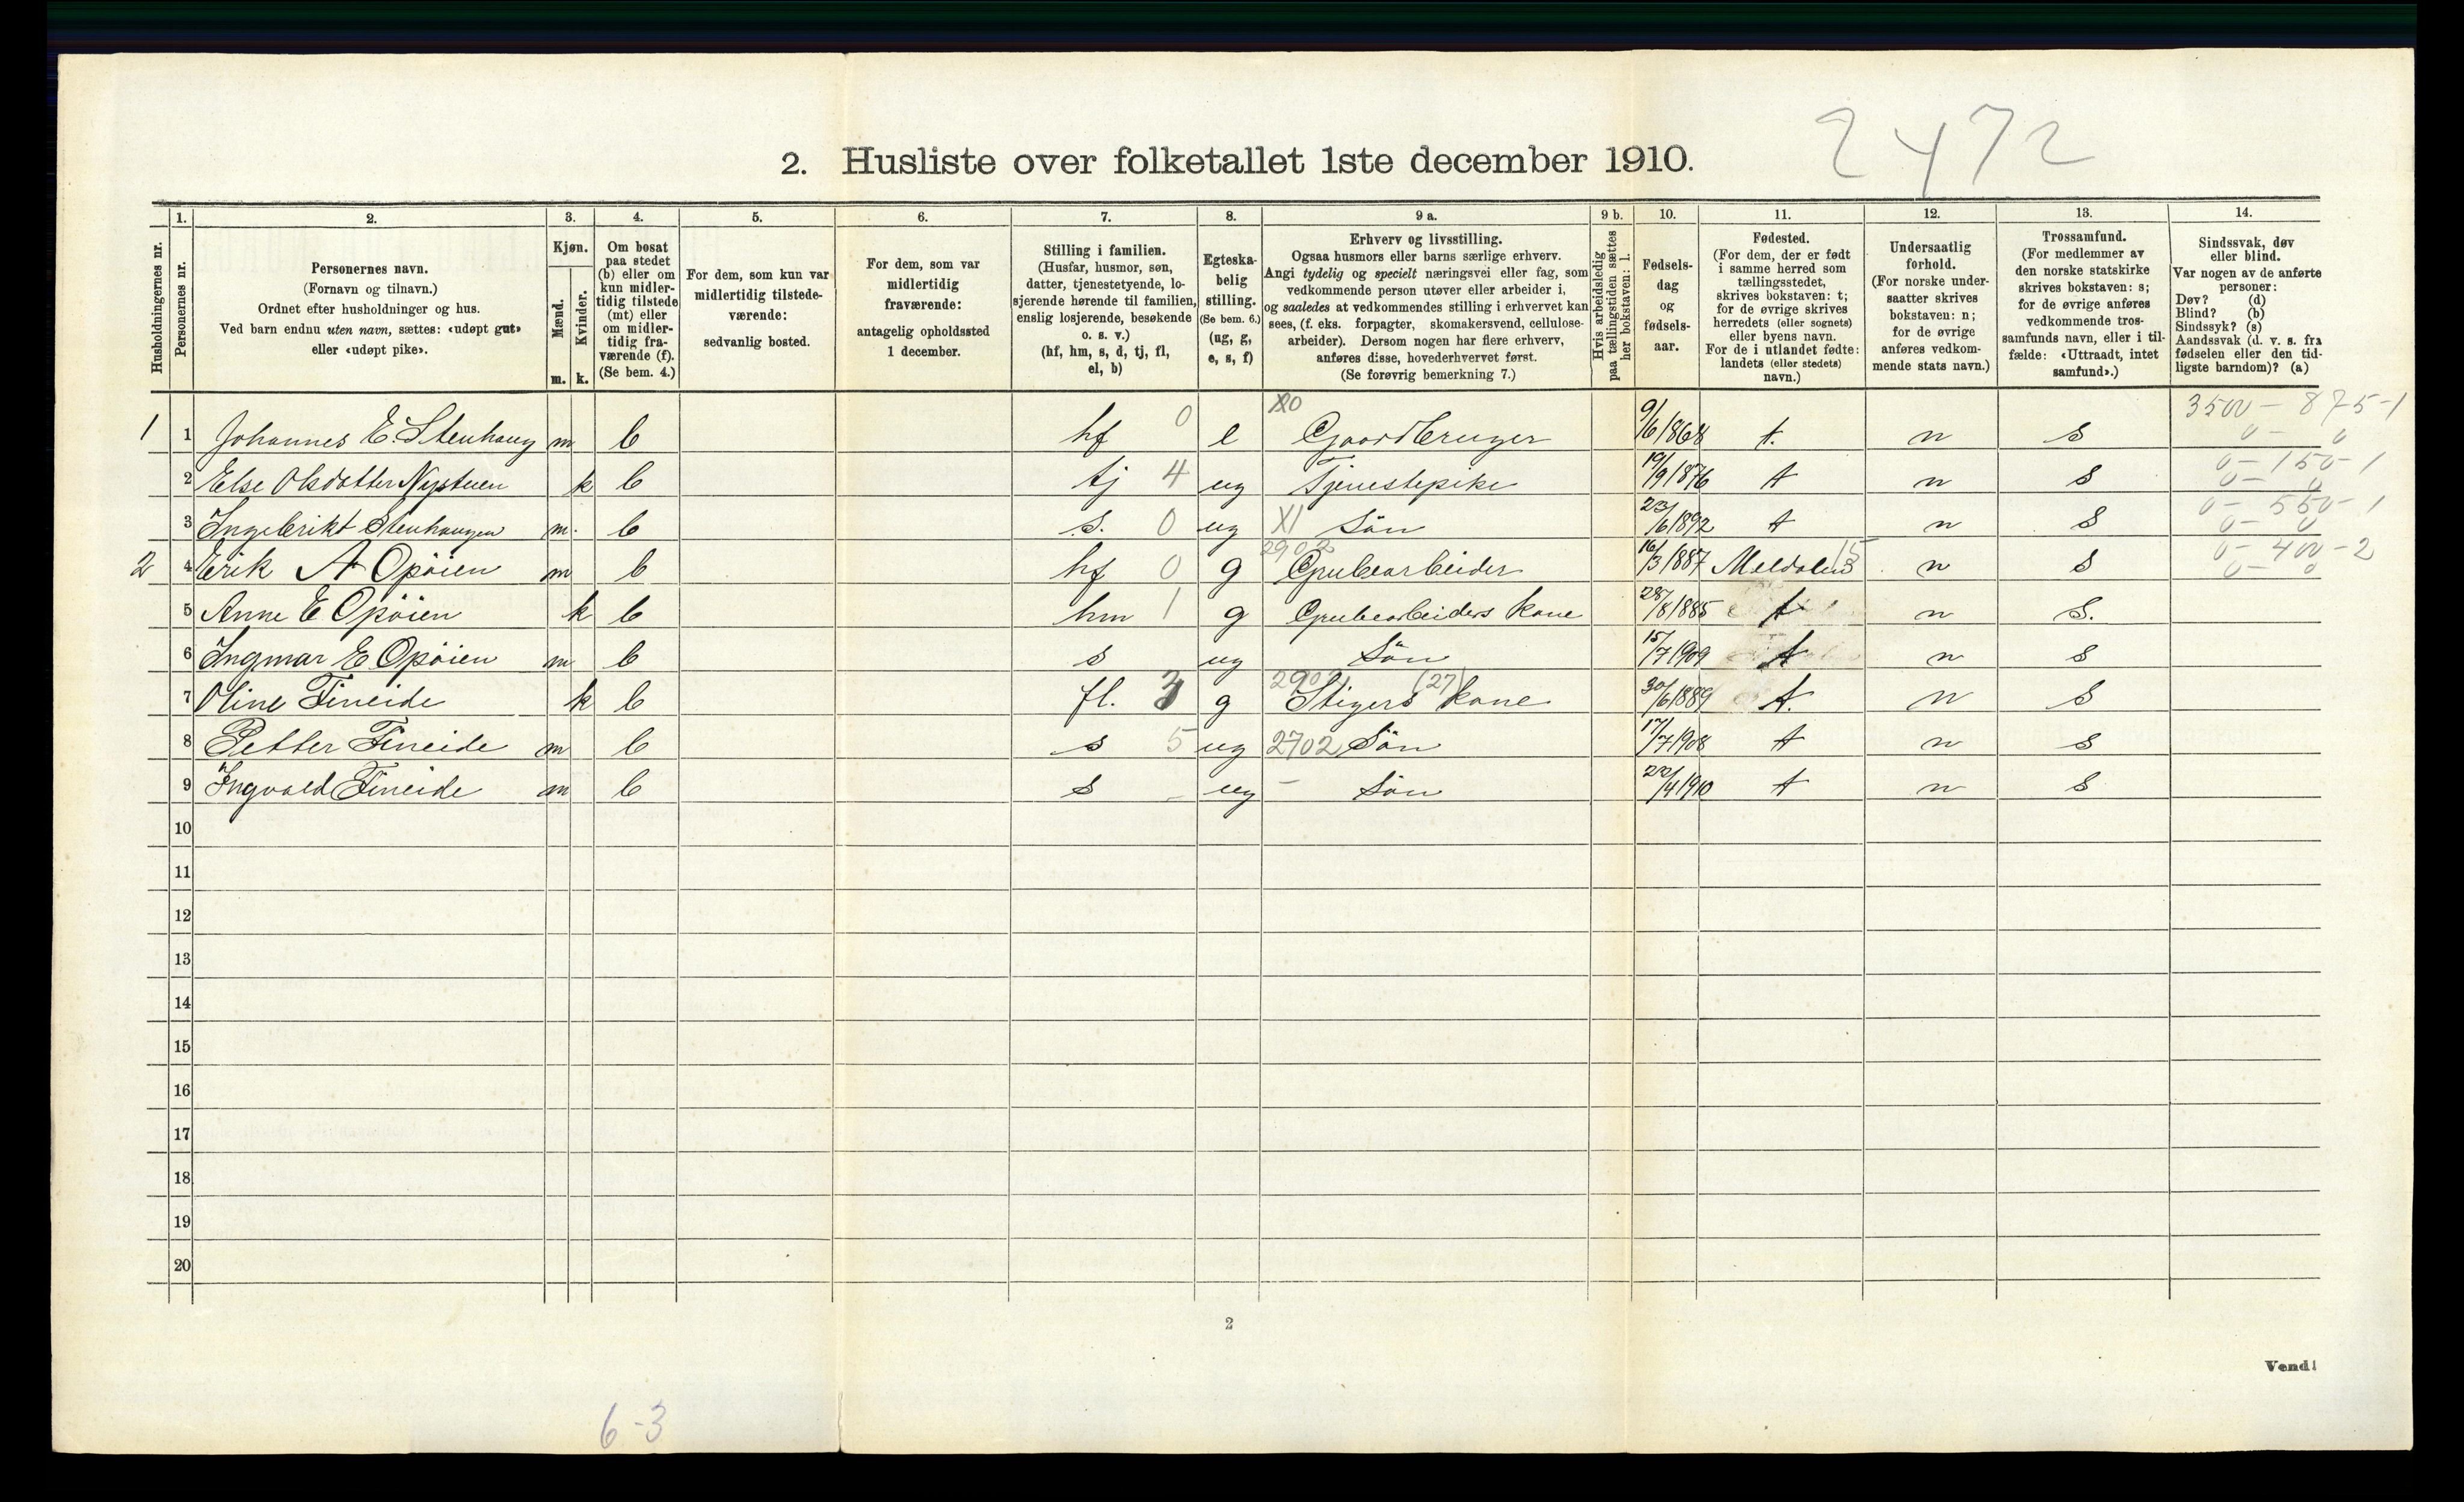 2472
2. Husliste over folketallet 1ste december 1910.
Husholdningernes nr.
1. Personernes nr.
2. Personernes navn.
(Fornavn og tilnavn.)
Ordnet efter husholdninger og hus.
Ved barn endnu uten navn, sættes: «udøpt gut»
eller «udøpt pike».
3. Kjøn.
Mænd. Kvinder.
m. k.
4. Om bosat
paa stedet
(b) eller om
kun midler-
tidig tilstede
(mt) eller
om midler-
tidig fra-
værende (f).
(Se bem. 4.)
5. For dem, som kun var
midlertidig tilstede-
værende:
sedvanlig bosted.
6. For dem, som var
midlertidig
fraværende:
antagelig opholdssted
1 december.
7. Stilling i familien.
(Husfar, husmor, søn,
datter, tjenestetyende, lo-
sjerende hørende til familien,
enslig losjerende, besøkende
o. s. v.)
(hf, hm, s, d, tj, fl,
el, b)
8. Egteska-
belig
stilling.
(Se bem. 6.)
(ug, g,
e, s, f)
9 a. Erhverv og livsstilling.
Ogsaa husmors eller barns særlige erhverv.
Angi tydelig og specielt næringsvei eller fag, som
vedkommende person utøver eller arbeider i,
og saaledes at vedkommendes stilling i erhvervet kan
sees, (f. eks. forpagter, skomakersvend, cellulose-
arbeider). Dersom nogen har flere erhverv,
anføres disse, hovederhvervet først.
(Se forøvrig bemerkning 7.)
9 b. Hvis arbeidsledig
paa tællingstiden sættes
her bokstaven: l.
10. Fødsels-
dag
og
fødsels-
aar.
11. Fødested.
(For dem, der er født
i samme herred som
tællingsstedet,
skrives bokstaven: t;
for de øvrige skrives
herredets (eller sognets)
eller byens navn.
For de i utlandet fødte:
landets (eller stedets)
navn.)
12. Undersaatlig
forhold.
(For norske under-
saatter skrives
bokstaven: n;
for de øvrige
anføres vedkom-
mende stats navn.)
13. Trossamfund.
(For medlemmer av
den norske statskirke
skrives bokstaven: s;
for de øvrige anføres
vedkommende tros-
samfunds navn, eller i til-
fælde: «Uttraadt, intet
samfund».)
14. Sindssvak, døv
eller blind.
Var nogen av de anførte
personer:
Døv? (d)
Blind? (b)
Sindssyk? (s)
Aandssvak (d. v. s. fra
fødselen eller den tid-
ligste barndom)? (a)
1 1 Johannes E. Stenhaug m b hf 0 e X0 Gaardbruger 9/6 1868 t. n s 3500 - 875-1 0 - 0
2 Else Olsdatter Nystuen k b tj 4 ug Tjenestepike 19/9 1876 t n s 0 - 150-1 0 - 0
3 Ingebrikt Stenhaugen m. b s. 0 ug XI Sön 23/6 1892 t n s 0 - 550-1 0 - 0
2 4 Erik A Opöien m b hf 0 g 2902 Grubearbeider 16/3 1887 Meldalen 15 n s 0 - 400-2 0 - 0
5 Anne E Opöien k b hm 1 g Grubearbeiders kone 28/8 1885 t n s.
6 Ingmar E Opöien m b s ug Sön 15/7 1909 t n s
7 Oline Fineide k b fl. 3 g 2902 (27) Stigers kone 30/6 1889 t. n s
8 Petter Fineide m b s 5 ug 2702 Sön 17/7 1908 t n s
9 Ingvald Fineide m b s - ug - Sön 22/4 1910 t n s
10
11
12
13
14
15
16
17
18
19
20
2
Vend!
6-3